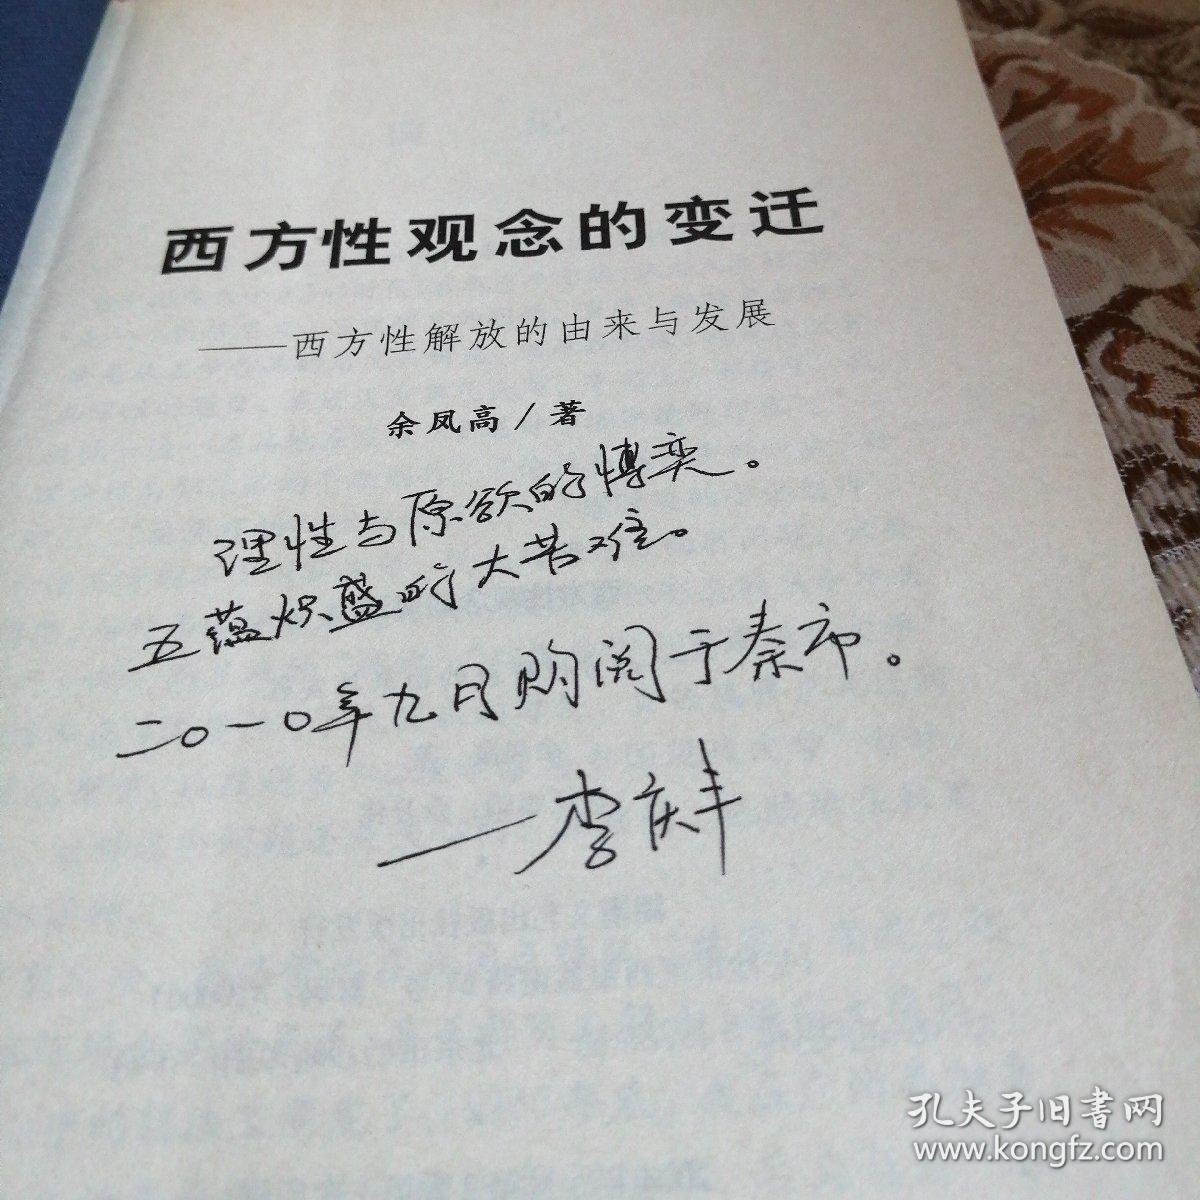 西方性观念的变迁
——西方性解放的由来与发展
余凤高/著
理性与原欲的博奕。
五蕴炽盛的大苦难。
二〇一〇年九月购阅于秦市。
——李庆丰
孔夫子旧书网
www.kongfz.com